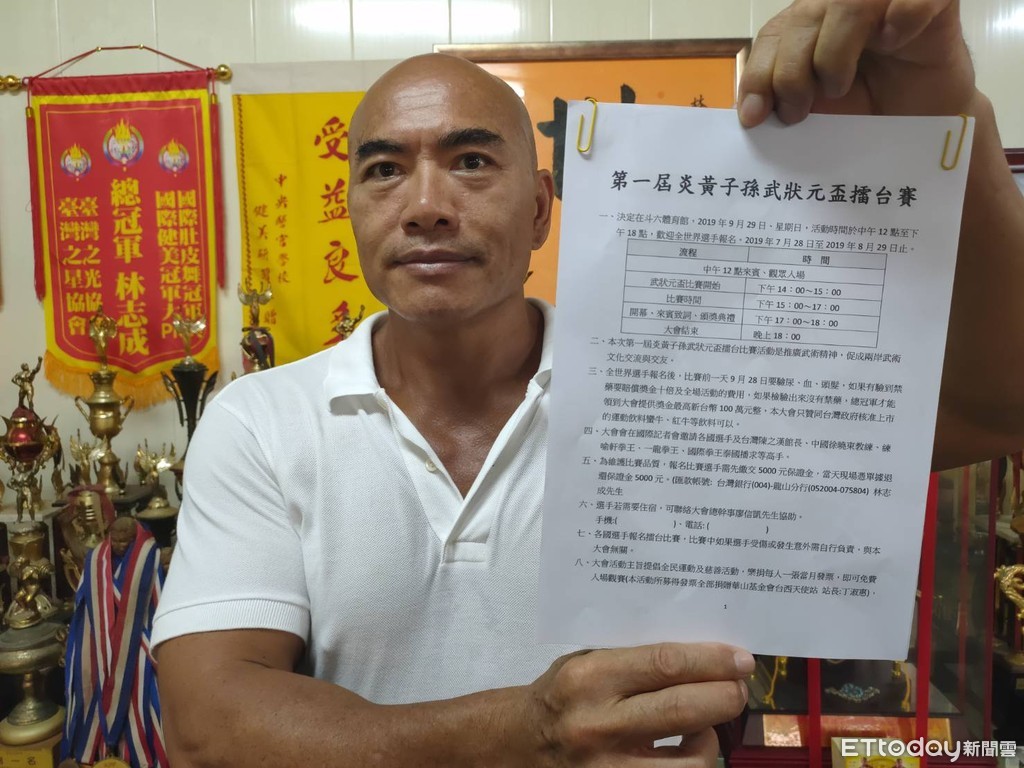 國際壯皮舞冠軍
國際健美冠軍大P
總冠軍 林志成
臺灣之光協會
臺灣之星協會
受益良多
中央警官學校
健美研習
贈
林
第一屆炎黃子孫武狀元盃擂台賽
一、決定在斗六體育館，2019 年 9 月 29 日、星期日，活動時間於中午 12 點至下
午 18 點，歡迎全世界選手報名。2019 年 7 月 28 日至 2019 年 8 月 29 日止。
流程 時 間
中午 12 點來賓、觀眾入場
武狀元盃比賽開始 下午 14：00～15：00
比賽時間 下午 15：00～17：00
開幕，來賓致詞、頒獎典禮 下午 17：00～18：00
大會結束 晚上 18：00
二、本次第一屆炎黃子孫武狀元盃擂台比賽活動是推廣武術精神，促成兩岸武術
文化交流與交友。
三、全世界選手報名後，比賽前一天 9 月 28 日要驗尿、血、頭髮，如果有驗到禁
藥要賠償獎金十倍及全場活動的費用，如果檢驗出來沒有禁藥，總冠軍才能
領到大會提供獎金最高新台幣 100 萬元整，本大會只贊同台灣政府核准上市
的運動飲料蠻牛、紅牛等飲料可以。
四、大會會在國際記者會邀請各國選手及台灣陳之漢館長、中國徐曉東教練、練
喻軒拳王、一龍拳王、國際拳王泰國播求等高手。
五、為維護比賽品質，報名比賽選手需先繳交 5000 元保證金，當天現場憑單據退
還保證金 5000 元。(匯款帳號: 台灣銀行(004)-龍山分行(052004-075804) 林志
成先生
六、選手若需要住宿，可聯絡大會總幹事廖信凱先生協助。
手機:( )、電話: ( )
七、各國選手報名擂台比賽，比賽中如果選手受傷或發生意外需自行負責，與本
大會無關。
八、大會活動主旨提倡全民運動及慈善活動，樂捐每人一張當月發票，即可免費
入場觀賽(本活動所募得發票全部捐贈華山基金會台西天使站 站長:丁淑惠)，
1
第一名
ETtoday新聞雲